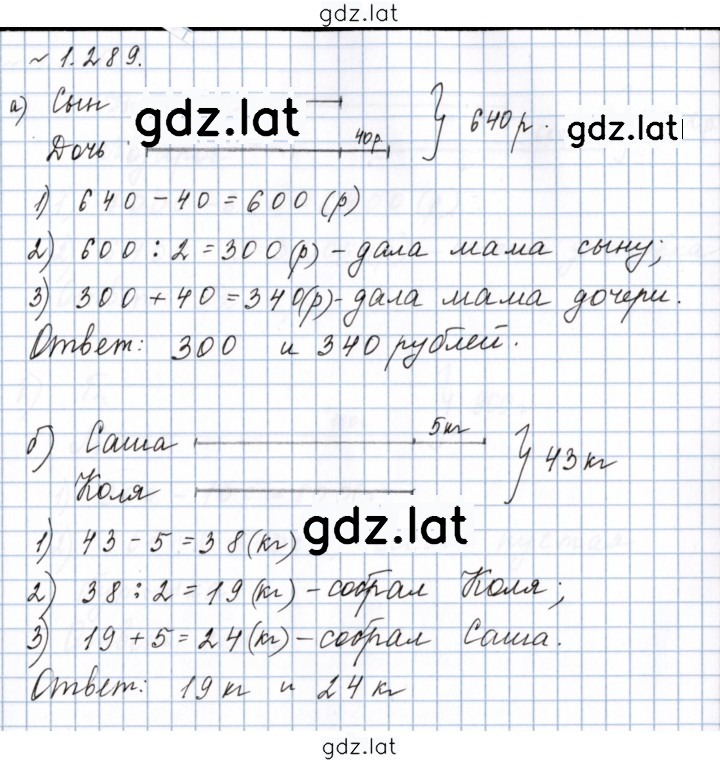 gdz.lat
~ 1.289.
а) Сын } 640 р.
gdz.lat
gdz.lat
Дочь 40р.
1) 640 - 40 = 600 (р)
2) 600 : 2 = 300 (р) - дала мама сыну;
3) 300 + 40 = 340 (р) - дала мама дочери.
Ответ: 300 и 340 рублей.
б) Саша 5кг } 43 кг
Коля
gdz.lat
1) 43 - 5 = 38 (кг)
2) 38 : 2 = 19 (кг) - собрал Коля;
3) 19 + 5 = 24 (кг) - собрал Саша.
Ответ: 19 кг и 24 кг
gdz.lat